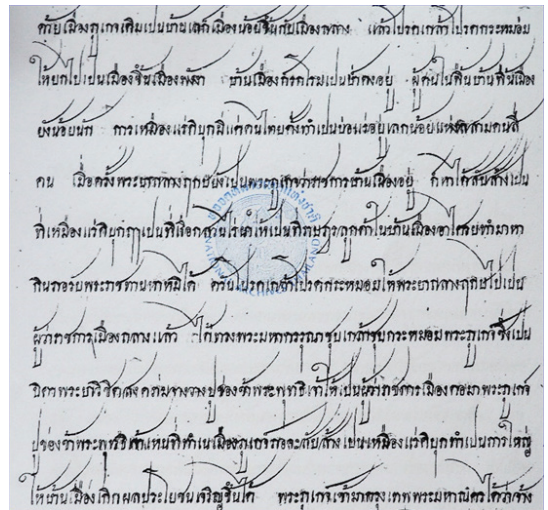 ด้วยเมืองภูเกจเดิมเปนบ้านเลกเมืองน้อยขึ้นกับเมืองถลาง แล้วโปรดเกล้าโปรดกระหม่อม
ให้ยกไปเปนเมืองขึ้นเมืองพังงา บ้านเมืองก็รกโรมเปนป่าดงอยู่ ผู้คนในพื้นบ้านพื้นเมือง
ยังน้อยนัก การเหมืองแร่ดีบุกมีแต่คนไทยตั้งทำเปนบ่อแร่อยู่เลกน้อยแห่งลสามคนสี่
คน เมื่อครั้งพระยาถลางฤกษ์ยังเปนพระภูเกจว่าราชการบ้านเมืองอยู่ ก็หาได้
ที่เหมืองแร่ดีบุก เปนที่เรือกสวนไร่นาให้เปนที่ ลูกค้าในบ้านเมืองอาไศรยทำมาหา
กิน พระราชทานหามิได้ ครั้นโปรดเกล้าโปรดกระหม่อมให้พระยาถลางฤกษ์ไปเปน
ผู้ว่าราชการเมืองถลางแล้ว ได้ทรงพระมหากรรุณาชุบเกล้าชุบกระหม่อมพระภูเกจซึ่งเปน
บิดาพระยาวิชิตสงคราม ปู่ของข้าพระพุทธิเจ้าให้เปนผู้ว่าราชการเมืองต่อมาพระภูเกจ
ปู่ของข้าพระพุทธิเจ้าเหนที่ทำเนเมืองภูเกจ เปนเหมืองแร่ดีบุกทำเปนการใหญ่
ให้บ้านเมืองเกิดผลประโยชนเจริญขึ้นได้ พระภูเกจเข้ามากรุงเทพพระมหานคร ได้ว่าจ้าง